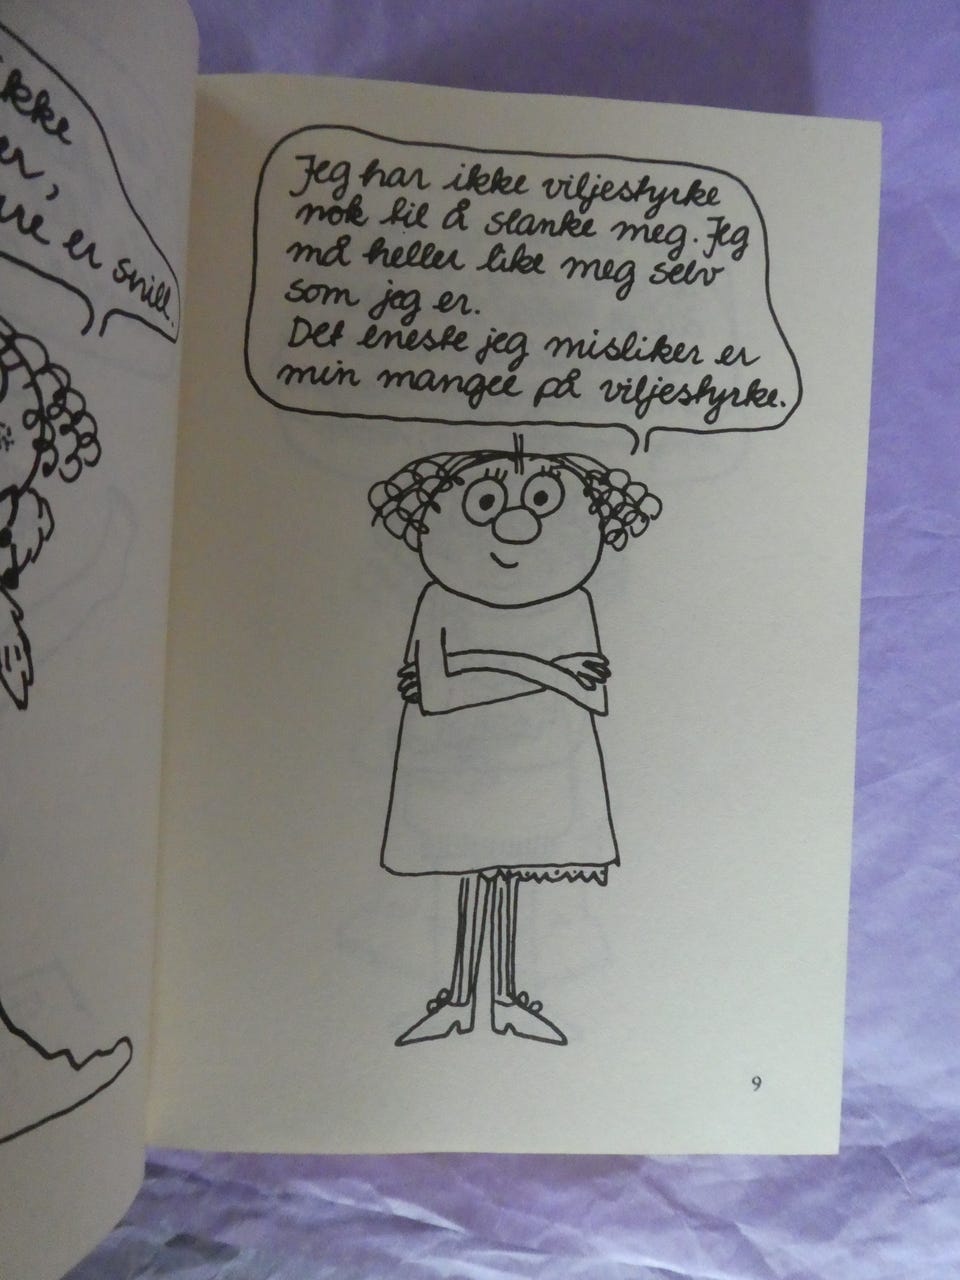 ikke
er,
er snill.
Jeg har ikke viljestyrke
nok til å slanke meg. Jeg
må heller like meg selv
som jeg er.
Det eneste jeg misliker er
min mangel på viljestyrke.
9